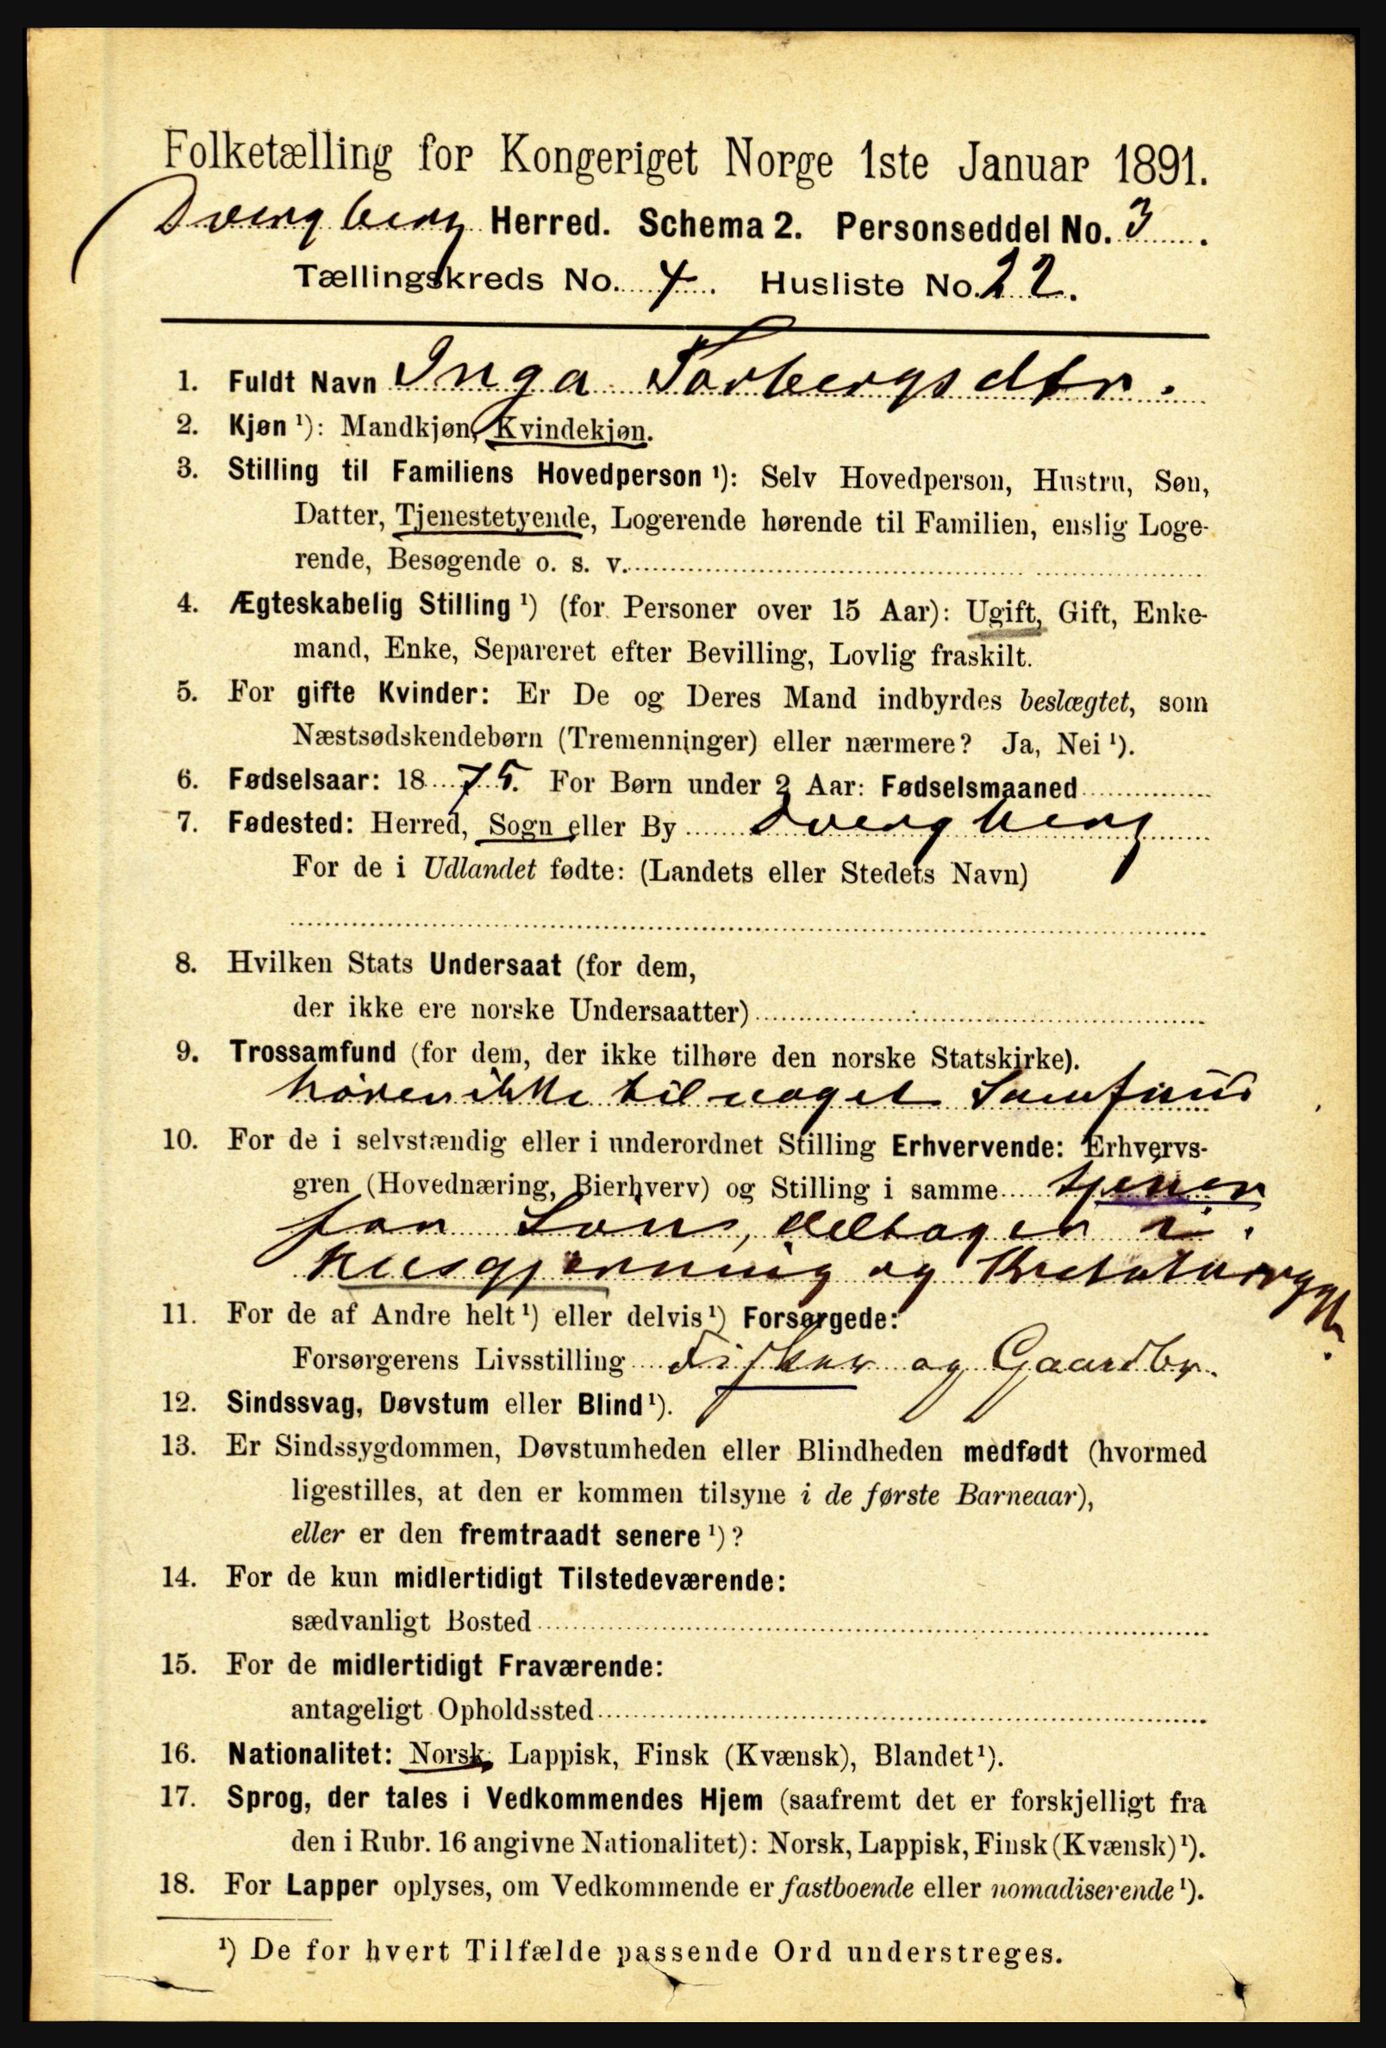 Folketælling for Kongeriget Norge 1ste Januar 1891.
Dvergberg Herred. Schema 2. Personseddel No. 3.
Tællingskreds No. 4. Husliste No. 22.
1. Fuldt Navn Inga Torbergsdtr.
2. Kjøn ¹): Mandkjøn, Kvindekjøn.
3. Stilling til Familiens Hovedperson ¹): Selv Hovedperson, Hustru, Søn,
Datter, Tjenestetyende, Logerende hørende til Familien, enslig Loge-
rende, Besøgende o. s. v.
4. Ægteskabelig Stilling ¹) (for Personer over 15 Aar): Ugift, Gift, Enke-
mand, Enke, Separeret efter Bevilling, Lovlig fraskilt.
5. For gifte Kvinder: Er De og Deres Mand indbyrdes beslægtet, som
Næstsødskendebørn (Tremenninger) eller nærmere? Ja, Nei ¹).
6. Fødselsaar: 1875. For Børn under 2 Aar: Fødselsmaaned
7. Fødested: Herred, Sogn eller By Dvergberg
For de i Udlandet fødte: (Landets eller Stedets Navn)
8. Hvilken Stats Undersaat (for dem,
der ikke ere norske Undersaatter)
9. Trossamfund (for dem, der ikke tilhøre den norske Statskirke).
hører ikke til noget Samfund
10. For de i selvstændig eller i underordnet Stilling Erhvervende: Erhvervs-
gren (Hovednæring, Bierhverv) og Stilling i samme tjener
for Løn, deltager i
Husgjerning og Kreaturrygt.
11. For de af Andre helt ¹) eller delvis ¹) Forsørgede:
Forsørgerens Livsstilling Fisker og Gaardbr.
12. Sindssvag, Døvstum eller Blind ¹).
13. Er Sindssygdommen, Døvstumheden eller Blindheden medfødt (hvormed
ligestilles, at den er kommen tilsyne i de første Barneaar),
eller er den fremtraadt senere ¹)?
14. For de kun midlertidigt Tilstedeværende:
sædvanligt Bosted
15. For de midlertidigt Fraværende:
antageligt Opholdssted
16. Nationalitet: Norsk, Lappisk, Finsk (Kvænsk), Blandet ¹).
17. Sprog, der tales i Vedkommendes Hjem (saafremt det er forskjelligt fra
den i Rubr. 16 angivne Nationalitet): Norsk, Lappisk, Finsk (Kvænsk) ¹).
18. For Lapper oplyses, om Vedkommende er fastboende eller nomadiserende ¹).
¹) De for hvert Tilfælde passende Ord understreges.